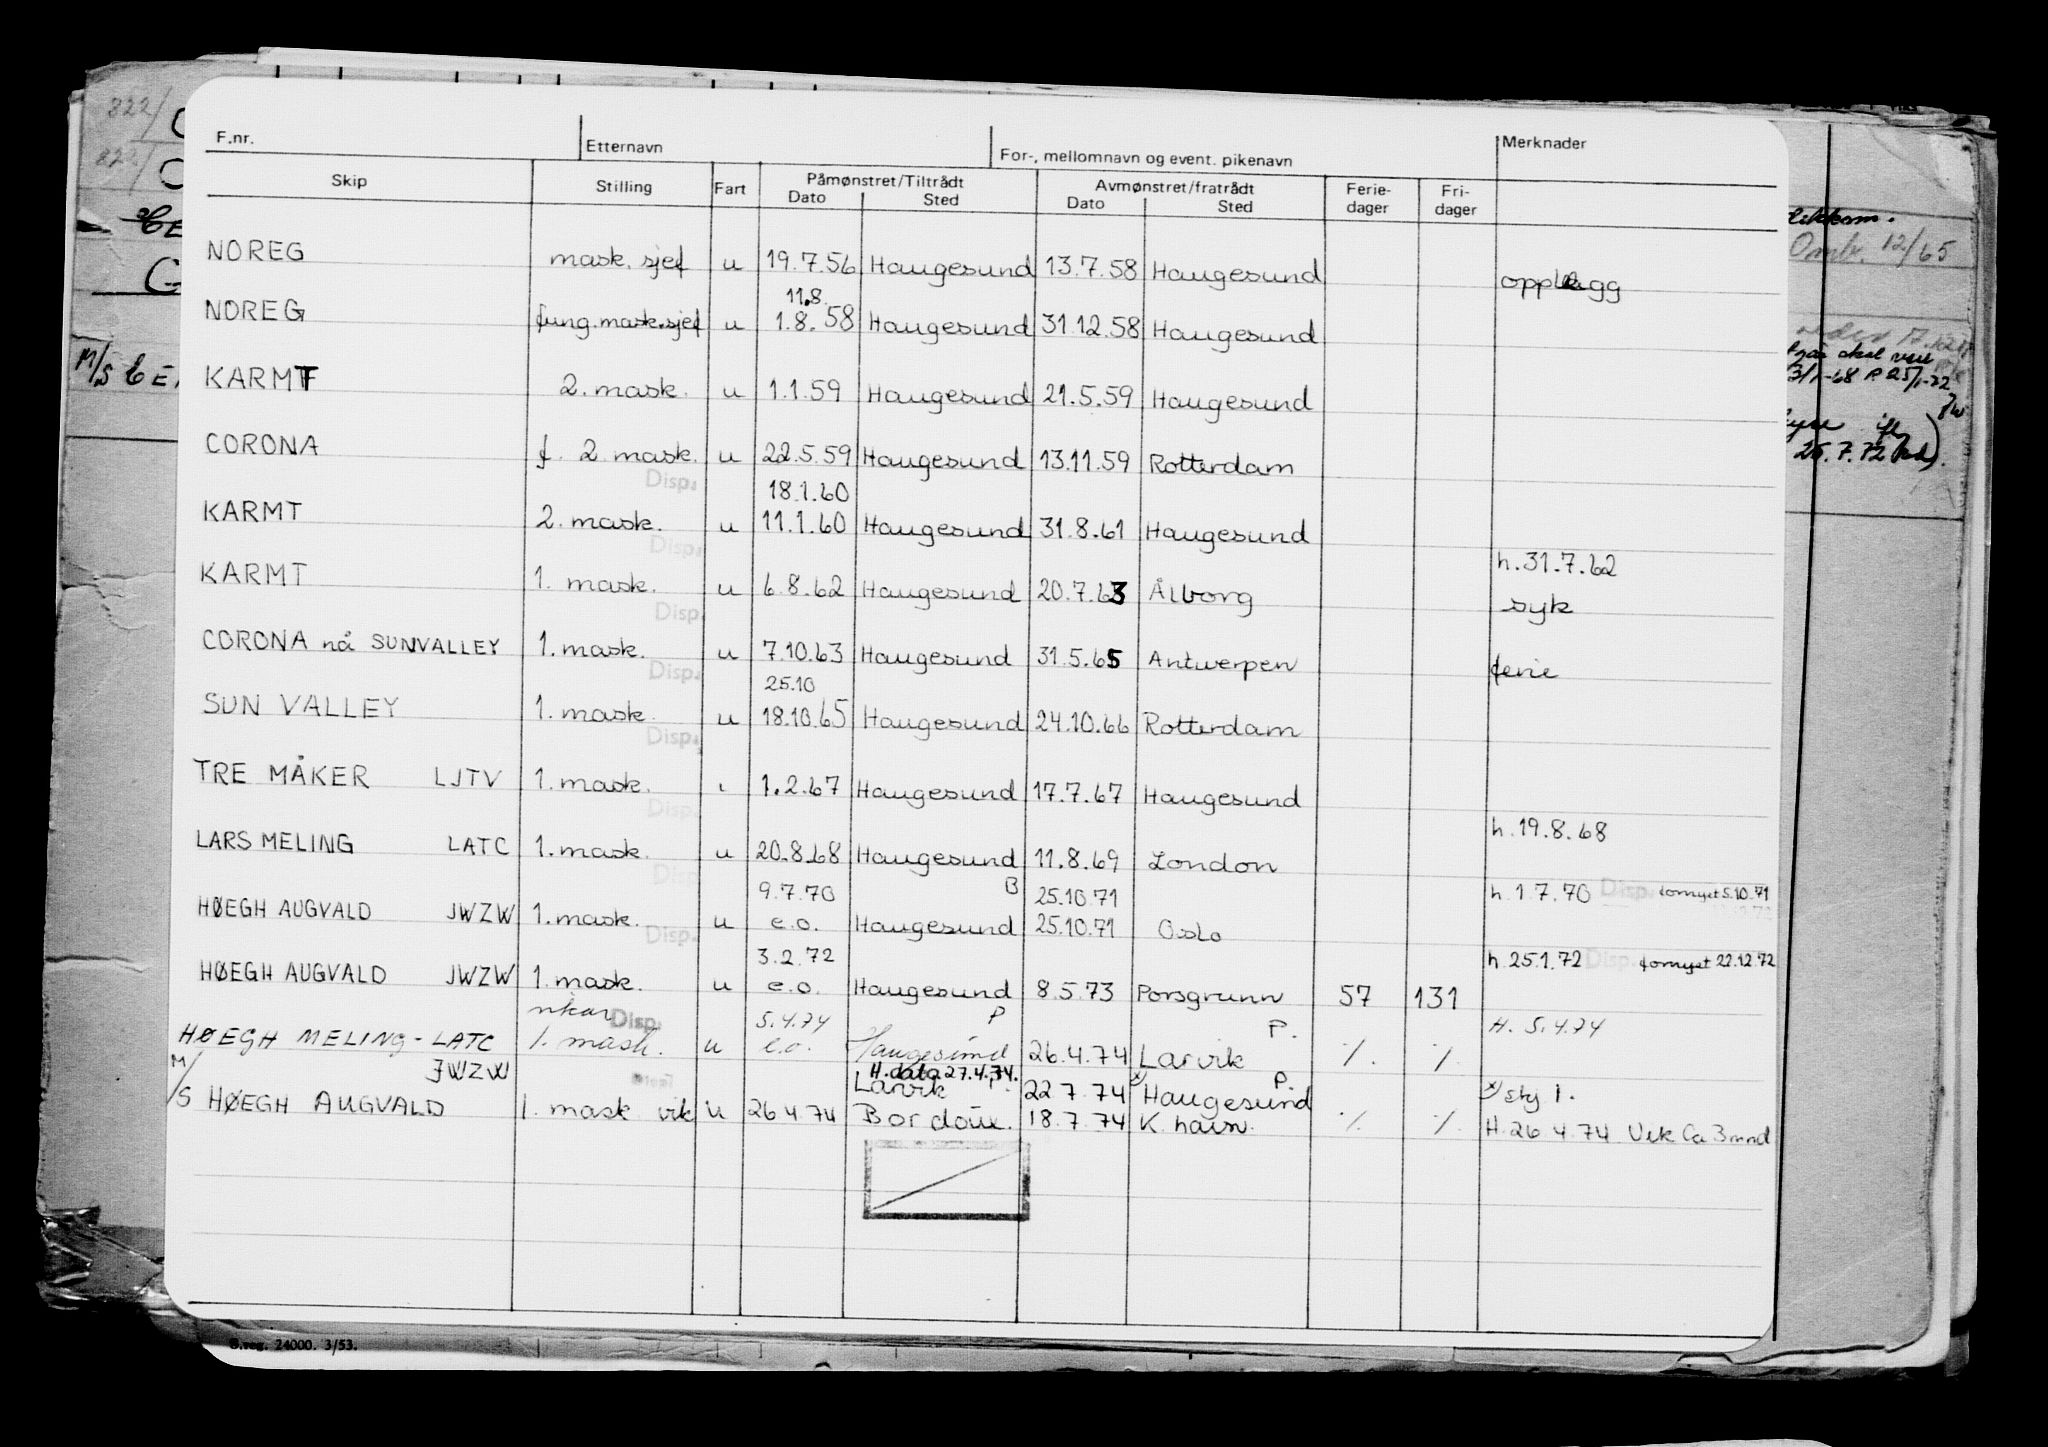 822/
822/
F.nr. Etternavn For-, mellomnavn og event. pikenavn Merknader
Skip Stilling Fart Påmønstret/Tiltrådt Avmønstret/fratrådt Ferie- Fri-
Dato Sted Dato Sted dager dager
NOREG mask. sjef u 19.7.56 Haugesund 13.7.58 Haugesund opplagg
11.8.
NOREG fung. mask.sjef u 1.8.58 Haugesund 31.12.58 Haugesund
KARMT 2. mask. u 1.1.59 Haugesund 21.5.59 Haugesund
CORONA f. 2. mask. u 22.5.59 Haugesund 13.11.59 Rotterdam
Disp. 18.1.60
KARMT 2. mask. u 11.1.60 Haugesund 31.8.61 Haugesund
Disp. h. 31.7.62
KARMT 1. mask. u 6.8.62 Haugesund 20.7.63 Ålborg syk
Disp.
CORONA nå SUNVALLEY 1. mask. u 7.10.63 Haugesund 31.5.65 Antwerpen ferie
Disp. 25.10
SUN VALLEY 1. mask. u 18.10.65 Haugesund 24.10.66 Rotterdam
Disp.
TRE MÅKER LJTV 1. mask. 1.2.67 Haugesund 17.7.67 Haugesund
Disp. h. 19.8.68
LARS MELING LATC 1. mask. u 20.8.68 Haugesund 11.8.69 London
Disp. 9.7.70 B 25.10.71 h. 1.7.70 Disp. fornyet 5.10.71
HØEGH AUGVALD JWZW 1. mask. u e.o. Haugesund 25.10.71 Oslo
Disp. 3.2.72 h. 25.1.72 Disp. fornyet 22.12.72
HØEGH AUGVALD JWZW 1. mask. u e.o. Haugesund 8.5.73 Porsgrunn 57 131
vikar Disp. 5.4.74 P P. H. 5.4.74
HØEGH MELING - LATC 1. mask. u e.o. Haugesund 26.4.74 Larvik % %
H. dato 27.4.74.
M/ JWZW Larvik P. 22.7.74 x) Haugesund P. x) skj 1.
S HØEGH AUGVALD 1. mask vik u 26.4.74 Bordoux. 18.7.74 K. havn. % % H. 26.4.74 Vik Ca 3 mnd
M/S
Omb. 12/65
3/1-68 P 25/1-72
25.7.72
S.reg. 24000. 3/53.